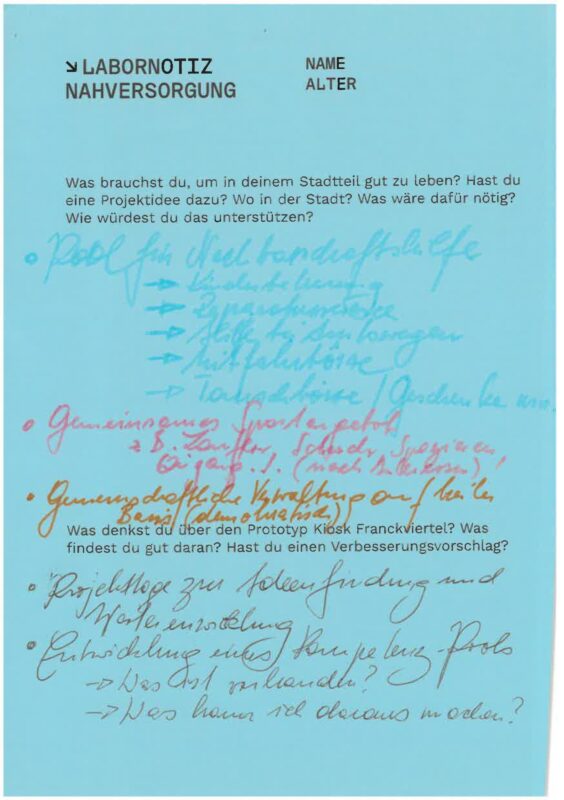 ↘ LABORNOTIZ
NAHVERSORGUNG
NAME
ALTER
Was brauchst du, um in deinem Stadtteil gut zu leben? Hast du
eine Projektidee dazu? Wo in der Stadt? Was wäre dafür nötig?
Wie würdest du das unterstützen?
• Pool für Nachbarschaftshilfe
→ Kinderbetreuung
→ Reparaturservice
→ Hilfe bei
→ Mitfahrbörse
→ Tauschbörse / Geschenke usw.
• Gemeinsames Sportangebot
z.B. Schach, Spazieren
(nach Interessen)!
• Gemeinschaftliche Verwaltung auf
Basis (demokratisch)
Was denkst du über den Prototyp Kiosk Franckviertel? Was
findest du gut daran? Hast du einen Verbesserungsvorschlag?
• Projekttage zur Ideenfindung und
Weiterentwicklung
• Entwicklung eines Kompetenz-Pools
→ Was ist vorhanden?
→ Was kann ich daraus machen?